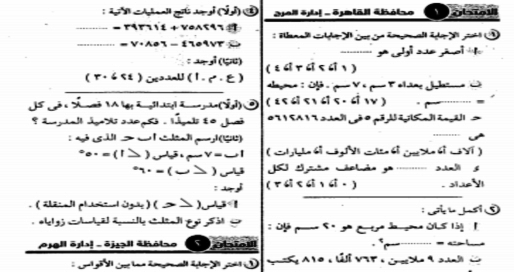 الامتحان ١ محافظة القاهرة - إدارة المرج
١ اختر الإجابة الصحيحة من بين الإجابات المعطاة :
أ أصغر عدد أولى هو ........
( ١ أ، ٢ أ، ٣ أ، ٤ )
ب مستطيل بعداه ٣ سم ، ٧ سم . فإن : محيطه
= ........ سم . ( ١٧ أ، ٢٠ أ، ٢١ أ، ٤٢ )
ج القيمة المكانية للرقم ٥ فى العدد ٥٦١٢٨١٦
هى ........
( آلاف أ، ملايين أ، مئات الألوف أ، مليارات )
ء العدد ........ هو مضاعف مشترك لكل
الأعداد . ( ٠ أ، ١ أ، ٢ أ، ٣ )
٢ أكمل ما يأتى :
أ إذا كان محيط مربع هو ٢٠ سم فإن :
مساحته = ........ سم٢ .
ب العدد ٩ ملايين ، ٧٦٣ ألفًا ، ٨١٥ يكتب
٤ (أولًا) أوجد ناتج العمليات الآتية :
أ ٧٥٨٢٩٦ + ٣٩٣٦١٤ = ........
ب ٤٦٥٩٧٣ - ٧٠٨٥٦ = ........
(ثانيًا) أوجد :
( ع . م . أ ) للعددين ( ٢٤ ، ٣٠ )
٥ (أولًا) مدرسة ابتدائية بها ١٨ فصلًا ، فى كل
فصل ٤٥ تلميذًا . فكم عدد تلاميذ المدرسة ؟
(ثانيًا) ارسم المثلث أ ب حـ الذى فيه :
أ ب = ٧ سم ، قياس ( ∠ أ ) = ٥٠°
قياس ( ∠ ب ) = ٦٠°
أوجد :
أ قياس ( ∠ حـ ) ( بدون استخدام المنقلة ) .
ب اذكر نوع المثلث بالنسبة لقياسات زواياه .
الامتحان ٢ محافظة الجيزة - إدارة الهرم
١ اختر الإجابة الصحيحة مما بين الأقواس :